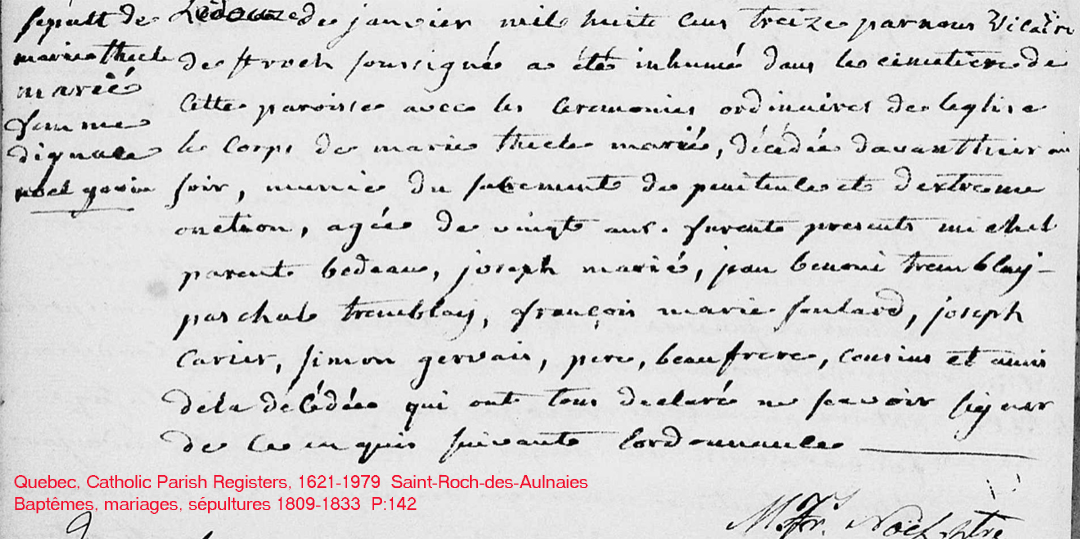 sepult de
marie thecle
marié
femme
dignace
noel gosin
Ledouze de janvier mil huite cens treize par nous Vicaire
de st roch soussigné a été inhumé dans le cimetiere de
cette paroisse avec les ceremonies ordinaires de leglise
le corps de marie thecle marié, décédée davanthier au
soir, munie du sacrements de penitence et dextreme
onction, agée de vingt ans. furent presents michel
parent bedeau, joseph marié, jean benoni tremblay
paschal tremblay, françois marie soulard, joseph
Carier, simon gervais, pere, beaufrere, cousins et amis
dela décédée qui ont tous declaré ne savoir signer
de ce enquis suivant lordonnance
M. Fr. Noël, ptre
Quebec, Catholic Parish Registers, 1621-1979 Saint-Roch-des-Aulnaies
Baptêmes, mariages, sépultures 1809-1833 P:142